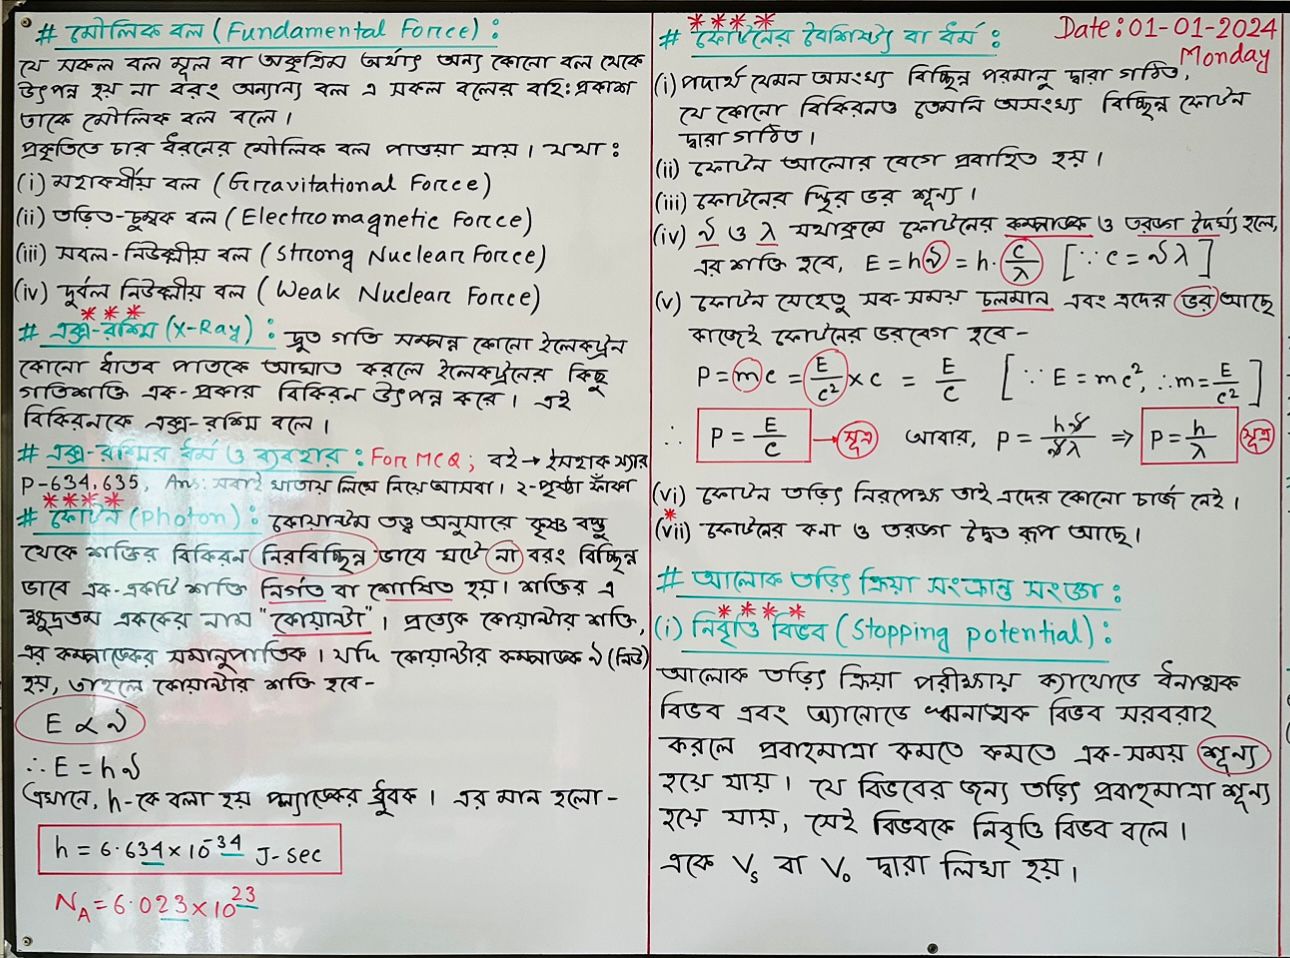 # মৌলিক বল (Fundamental Force) :
যে সকল বল মূল বা অকৃত্রিম অর্থাৎ অন্য কোনো বল থেকে
উৎপন্ন হয় না বরং অন্যান্য বল এ সকল বলের বহিঃপ্রকাশ
তাকে মৌলিক বল বলে।
প্রকৃতিতে চার ধরনের মৌলিক বল পাওয়া যায়। যথা :
(i) মহাকর্ষীয় বল (Gravitational Force)
(ii) তড়িত-চুম্বক বল (Electromagnetic Force)
(iii) সবল-নিউক্লীয় বল (Strong Nuclear Force)
(iv) দুর্বল নিউক্লীয় বল (Weak Nuclear Force)
***
# এক্স-রশ্মি (X-Ray) : দ্রুত গতি সম্পন্ন কোনো ইলেকট্রন
কোনো ধাতব পাতকে আঘাত করলে ইলেকট্রনের কিছু
গতিশক্তি এক-প্রকার বিকিরন উৎপন্ন করে। এই
বিকিরনকে এক্স-রশ্মি বলে।
# এক্স-রশ্মির ধর্ম ও ব্যবহার : For MCQ; বই → ইসহাক স্যার
P-634,635, Ans: সবাই খাতায় লিখে নিয়ে আসবা। ২-পৃষ্ঠা ফাঁকা
****
# ফোটন (Photon) : কোয়ান্টাম তত্ত্ব অনুসারে কৃষ্ণ বস্তু
থেকে শক্তির বিকিরন নিরবিচ্ছিন্ন ভাবে ঘটে না বরং বিচ্ছিন্ন
ভাবে এক-একটি শক্তি নির্গত বা শোষিত হয়। শক্তির এ
ক্ষুদ্রতম এককের নাম "কোয়ান্টা"। প্রত্যেক কোয়ান্টার শক্তি,
এর কম্পাঙ্কের সমানুপাতিক। যদি কোয়ান্টার কম্পাঙ্ক ν (নিউ)
হয়, তাহলে কোয়ান্টার শক্তি হবে-
E ∝ ν
∴ E = hν
এখানে, h-কে বলা হয় প্ল্যাঙ্কের ধ্রুবক। এর মান হলো-
h = 6.634×10⁻³⁴ J-sec
N_A = 6.023×10²³
Date: 01-01-2024
Monday
****
# ফোটনের বৈশিষ্ট্য বা ধর্ম :
(i) পদার্থ যেমন অসংখ্য বিচ্ছিন্ন পরমানু দ্বারা গঠিত,
যে কোনো বিকিরনও তেমনি অসংখ্য বিচ্ছিন্ন ফোটন
দ্বারা গঠিত।
(ii) ফোটন আলোর বেগে প্রবাহিত হয়।
(iii) ফোটনের স্থির ভর শূন্য।
(iv) ν ও λ যথাক্রমে ফোটনের কম্পাঙ্ক ও তরঙ্গ দৈর্ঘ্য হলে,
এর শক্তি হবে, E = hν = h. c/λ [∵ c = νλ]
(v) ফোটন যেহেতু সব-সময় চলমান এবং এদের ভর আছে
কাজেই ফোটনের ভরবেগ হবে-
P = mc = E/c² × c = E/c [∵ E = mc², ∴ m = E/c²]
∴ P = E/c → সূত্র আবার, P = hν/νλ ⇒ P = h/λ সূত্র
(vi) ফোটন তড়িৎ নিরপেক্ষ তাই এদের কোনো চার্জ নেই।
*
(vii) ফোটনের কনা ও তরঙ্গ দ্বৈত রূপ আছে।
# আলোক তড়িৎ ক্রিয়া সংক্রান্ত সংজ্ঞা :
****
(i) নিবৃত্তি বিভব (Stopping potential) :
আলোক তড়িৎ ক্রিয়া পরীক্ষায় ক্যাথোডে ধনাত্মক
বিভব এবং অ্যানোডে ঋনাত্মক বিভব সরবরাহ
করলে প্রবাহমাত্রা কমতে কমতে এক-সময় শূন্য
হয়ে যায়। যে বিভবের জন্য তড়িৎ প্রবাহমাত্রা শূন্য
হয়ে যায়, সেই বিভবকে নিবৃত্তি বিভব বলে।
একে Vₛ বা V₀ দ্বারা লিখা হয়।